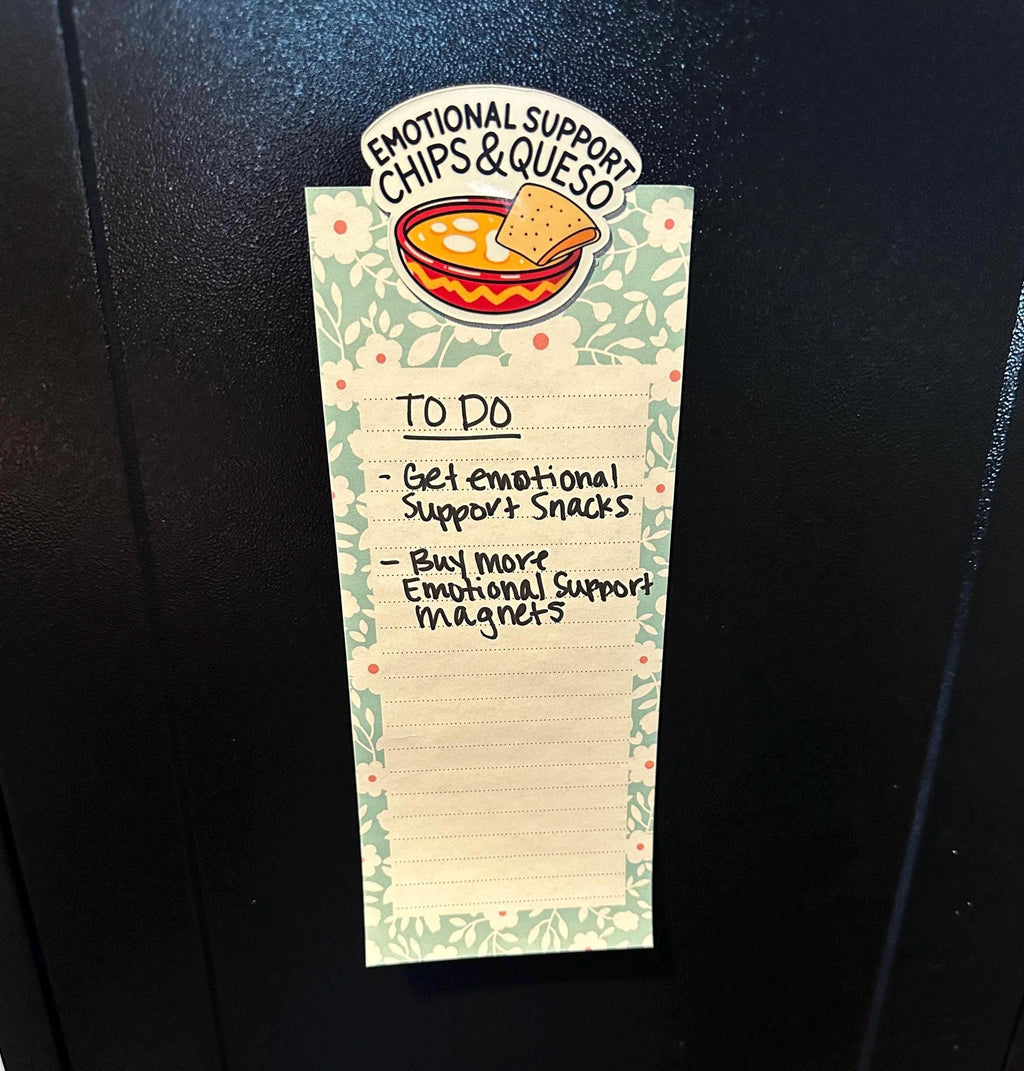 EMOTIONAL SUPPORT
CHIPS & QUESO
TO DO
- Get emotional
Support Snacks
- Buy more
Emotional Support
magnets